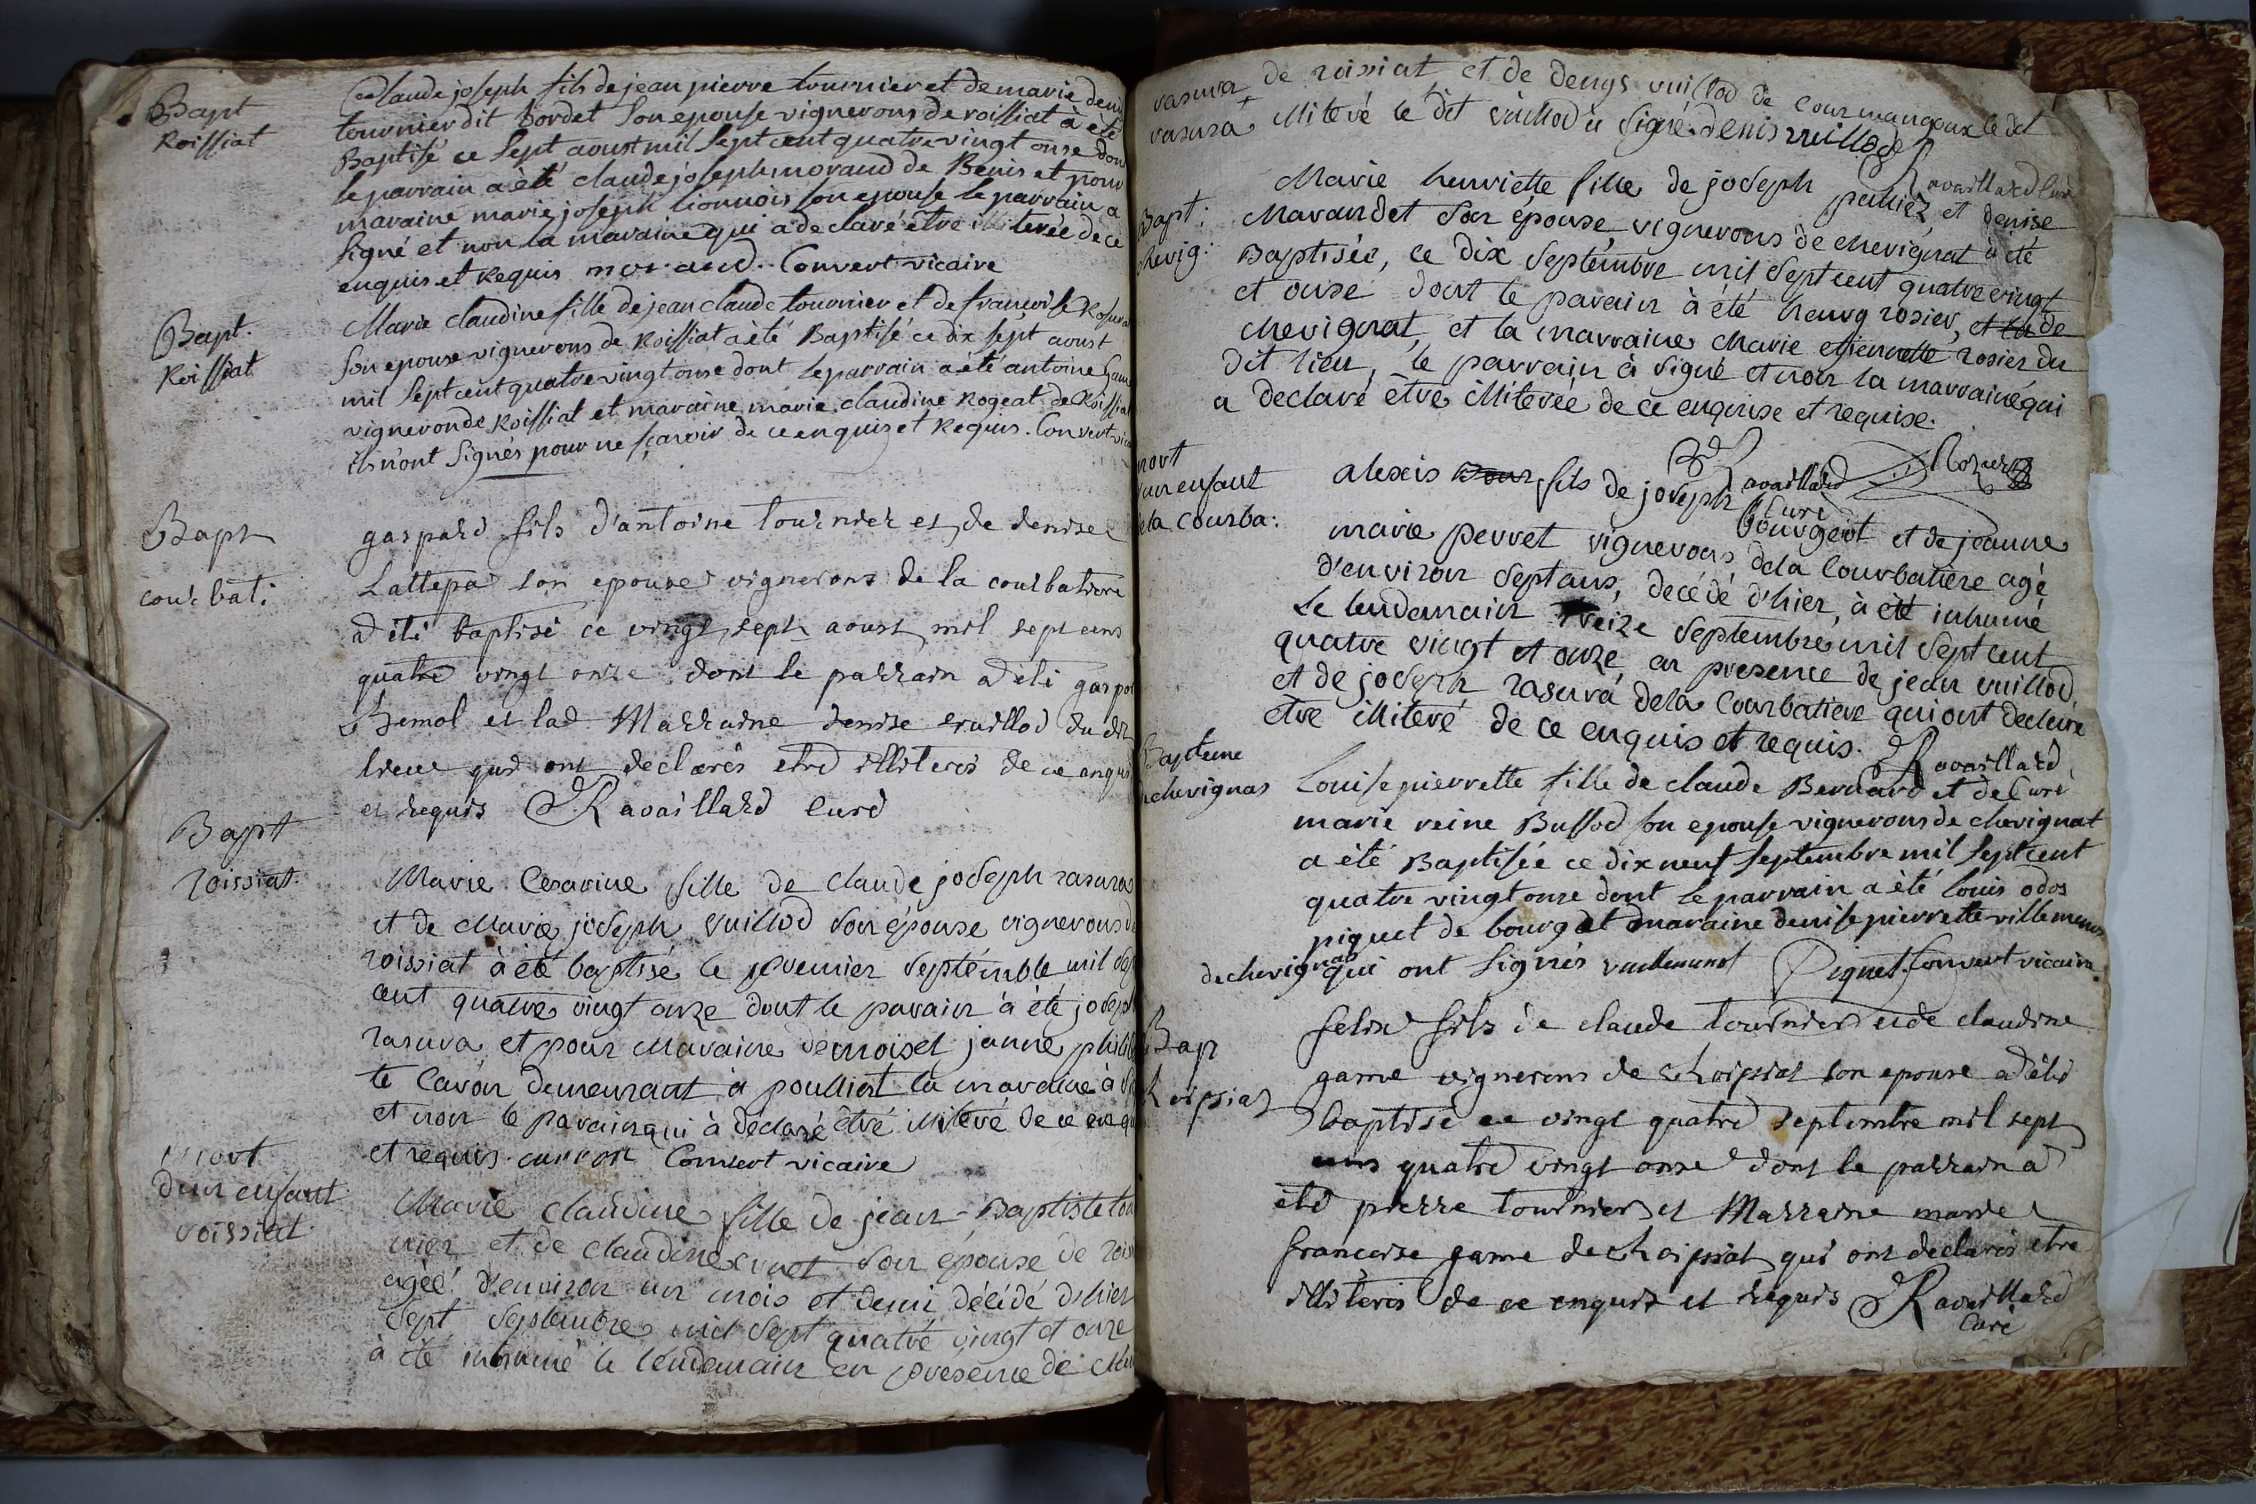 Bapt
Roissiat
Claude joseph fils de jean pierre tournier et de marie deni
tournier dit Bordet son epouse vignerons de roissiat à été
Baptisé ce sept aoust mil sept cent quatre vingt onse don
le parrain a été claude joseph morand de Benis et pour
maraine marie joseph lionnois son epouse le parrain a
signé et non la maraine qui a declaré être illiterée de ce
enquis et Requis morand. Convert vicaire
Bapt.
Roissiat
Marie claudine fille de jean claude tournier et de francoise
son epouse vignerons de Roissiat a été Baptisé ce dix sept aoust
mil sept cent quatre vingt onse dont le parrain a été antoine gam
vigneron de Roissiat et maraine marie claudine Rogeat de Roissiat
ils n'ont signés pour ne sçavoir de ce enquis et Requis. Convert vic
Bapt
courbati:
gaspard fils d'antoine tournier et de denise
Lattepa son epouse vignerons de la courbatiere
a été baptisé ce vingt sept aoust mil sept cens
quatre vingt onze dont le parrain a été gaspar
Bemol et la Marraine denise vuillod du dit
lieu qui ont declarés etre illiterés de ce enqui
et requis Ravaillard curé
Bapt
roissiat.
Marie Cesarine fille de claude joseph rasura
et de Marie joseph vuillod son épouse vignerons de
roissiat à été baptisé le premier septembre mil sep
cent quatre vingt onze dont le parain à été joseph
rasura et pour Maraine demoisel janne philib
te Cavon demeurant à poulliat la maraine à si
et non le parain qui à declaré être illiteré de ce enqu
et requis. Convert vicaire
mort
d'un enfant
roissiat.
Marie claudine fille de jean-Baptiste tou
nier et de claudine son épouse de rois
agée d'environ un mois et demi décédé d'hier
sept septembre mil sept quatre vingt et onze
à été inhumé le lendemain en presence de
rasura de roissiat et de denys vuillod de courmangoux le dit
rasura illiteré le dit vuillod à signé. denis vuillod
Ravaillard Curé
Bapt:
chevig:
Marie henriette fille de joseph palliez et denise
Marandet son épouse, vignerons de chevignat à été
Baptisée, ce dix septembre mil sept cent quatre vingt
et onse dont le parain à été henry rosier, et la de
chevignat, et la marraine Marie etiennette rosier du
dit lieu, le parrain à signé et non la marraine qui
a declaré etre illiterée de ce enquise et requise.
Ravaillard Curé
mort
d'un enfant
de la courba:
alexis fils de joseph bourgeot et de jeanne
marie perret vignerons de la Courbatiere agé
d'environ sept ans, decédé d'hier, à été inhumé
Le lendemain treize septembre mil sept cent
quatre vingt et onze en presence de jean vuillod
et de joseph rasura de la Courbatiere qui ont declaré
etre illiteré de ce enquis et requis. Ravaillard
Curé
Bapteme
chevignas
Louise pierrette fille de claude Bernard et de
marie reine Bussod son epouse vignerons de chevignat
a été Baptisée ce dix neuf septembre mil sept cent
quatre vingt onse dont le parrain a été louis odos
piquet de bourg et maraine denise pierrette villemenot
de chevignas qui ont signés vuillemenot Piquet Convert vicaire
Bap
roissiat
felix fils de claude tournier et de claudine
game vignerons de rhoissiat son epouse a été
baptisé ce vingt quatre septembre mil sept
cens quatre vingt onse dont le parrain a
été pierre tournier et Marraine marie
francoise game de rhoissiat qui ont declarés etre
illiterés de ce enquis et requis Ravaillard
Curé